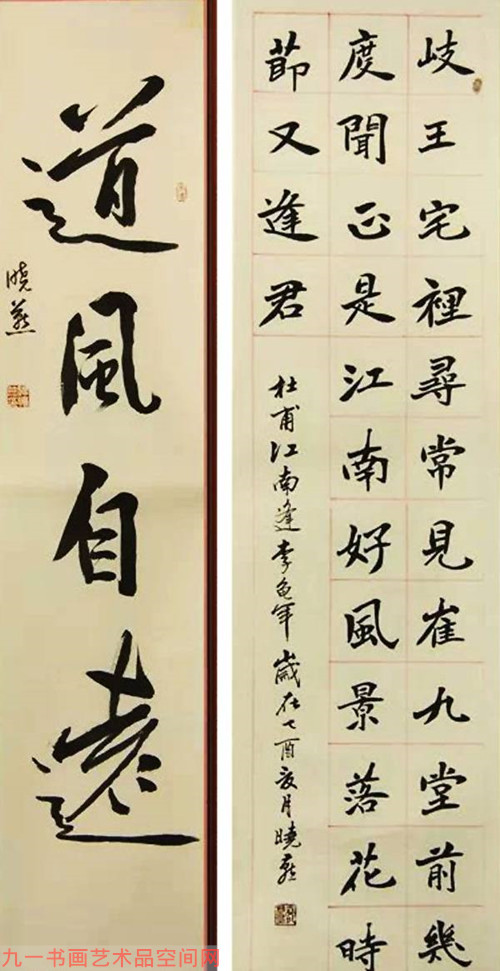 岐王宅裡尋常見崔九堂前幾
度聞正是江南好風景落花時
節又逢君
杜甫江南逢李龟年 歲在丁酉夏月曉燕
道風自遠
曉燕
九一书画艺术品空间网